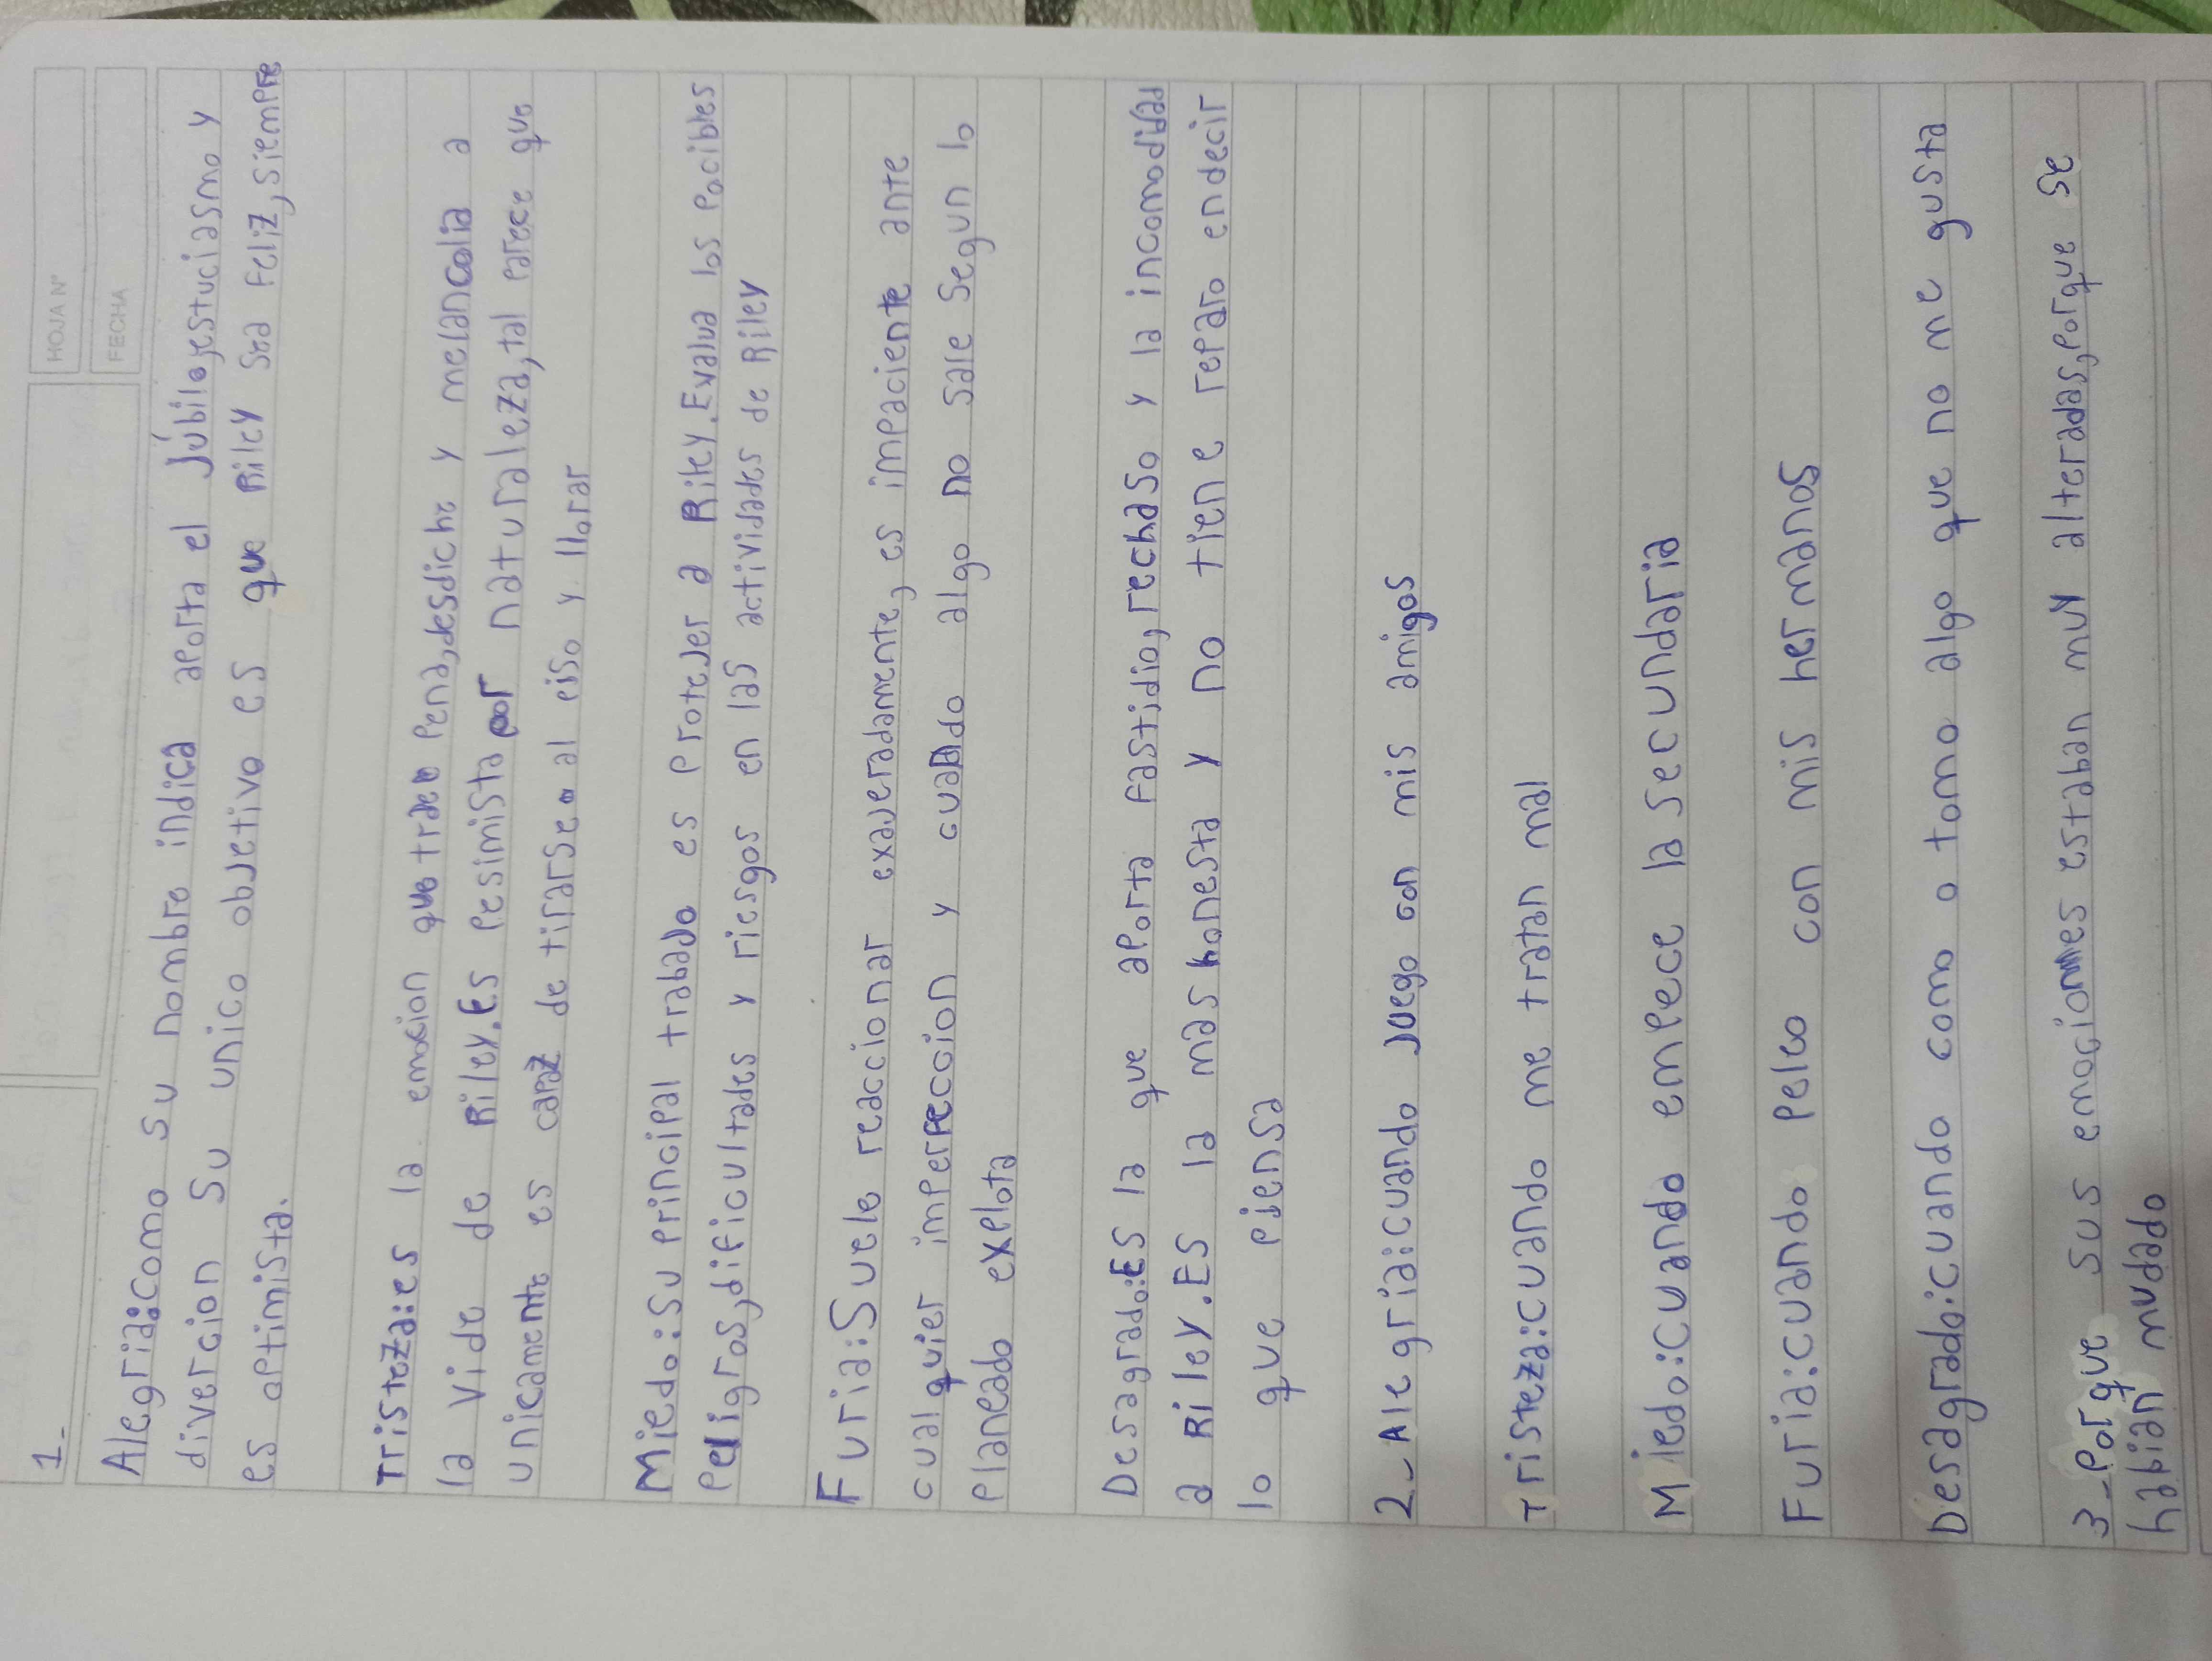 HOJA N°
FECHA
1_
Alegria:como su nombre indica aporta el Júbilo,estuciasmo y
divercion Su unico objetivo es que Riley sea Feliz,siempre
es optimista.
Tristeza:es la emocion que trae pena,desdiche y melancolia a
la vide de Riley.Es pesimista por naturaleza,tal parece que
unicamente es capaz de tirarse al piso y llorar
Miedo:Su principal trabajo es protejer a Riley.Evalua los pocibles
peligros,dificultades y riesgos en las actividades de Riley
Furia:Suele reaccionar exajeradamente,es impaciente ante
cualquier imperfeccion y cuando algo no sale segun lo
planeado explota
Desagrado:Es la que aporta fastidio,rechaso y la incomodidad
a Riley.Es la mas honesta y no tiene reparo endecir
lo que piensa
2_Alegria:cuando juego con mis amigos
Tristeza:cuando me tratan mal
Miedo:cuando empece la secundaria
Furia:cuando peleo con mis hermanos
Desagrado:cuando como o tomo algo que no me gusta
3_Porque sus emociones estaban muy alteradas,porque se
habian mudado